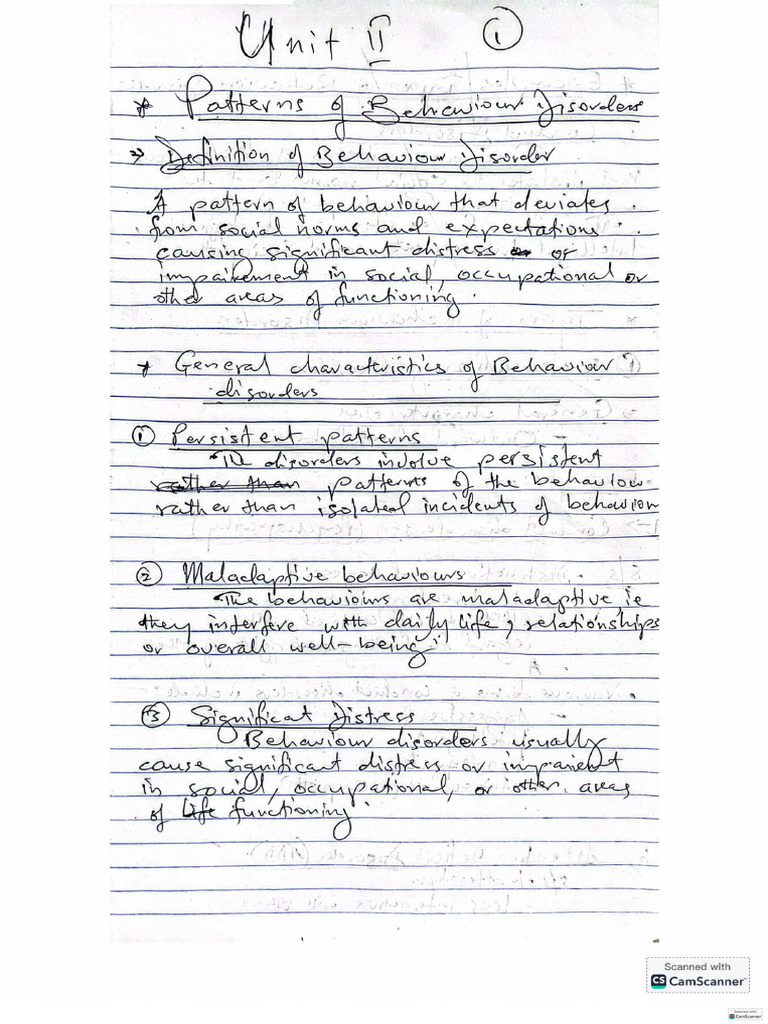 Unit II ①
* Patterns of Behaviour Disorders
⇒ Definition of Behaviour Disorder
A pattern of behaviour that deviates
from social norms and expectations
causing significant distress or
impairement in social, occupational or
other areas of functioning.
* General characteristics of Behaviour
disorders
① Persistent patterns
The disorders involve persistent
rather than patterns of the behaviour
rather than isolated incidents of behavior
② Maladaptive behaviours
The behaviours are maladaptive ie
they interfere with daily life, relationships
or overall well-being
③ Significat Distress
Behaviour disorders usually
cause significant distress or impairent
in social, occupational, or other areas
of life functioning.
Scanned with
CS CamScanner
Scanned with
CS CamScanner